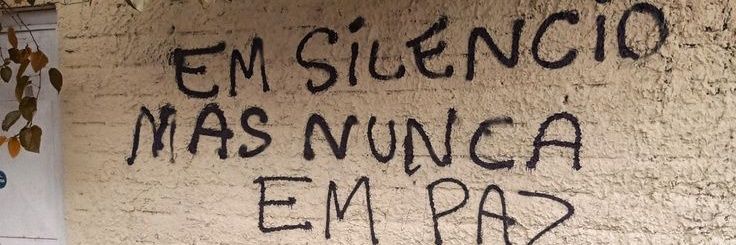 EM SILENCIO
MAS NUNCA
EM PAZ